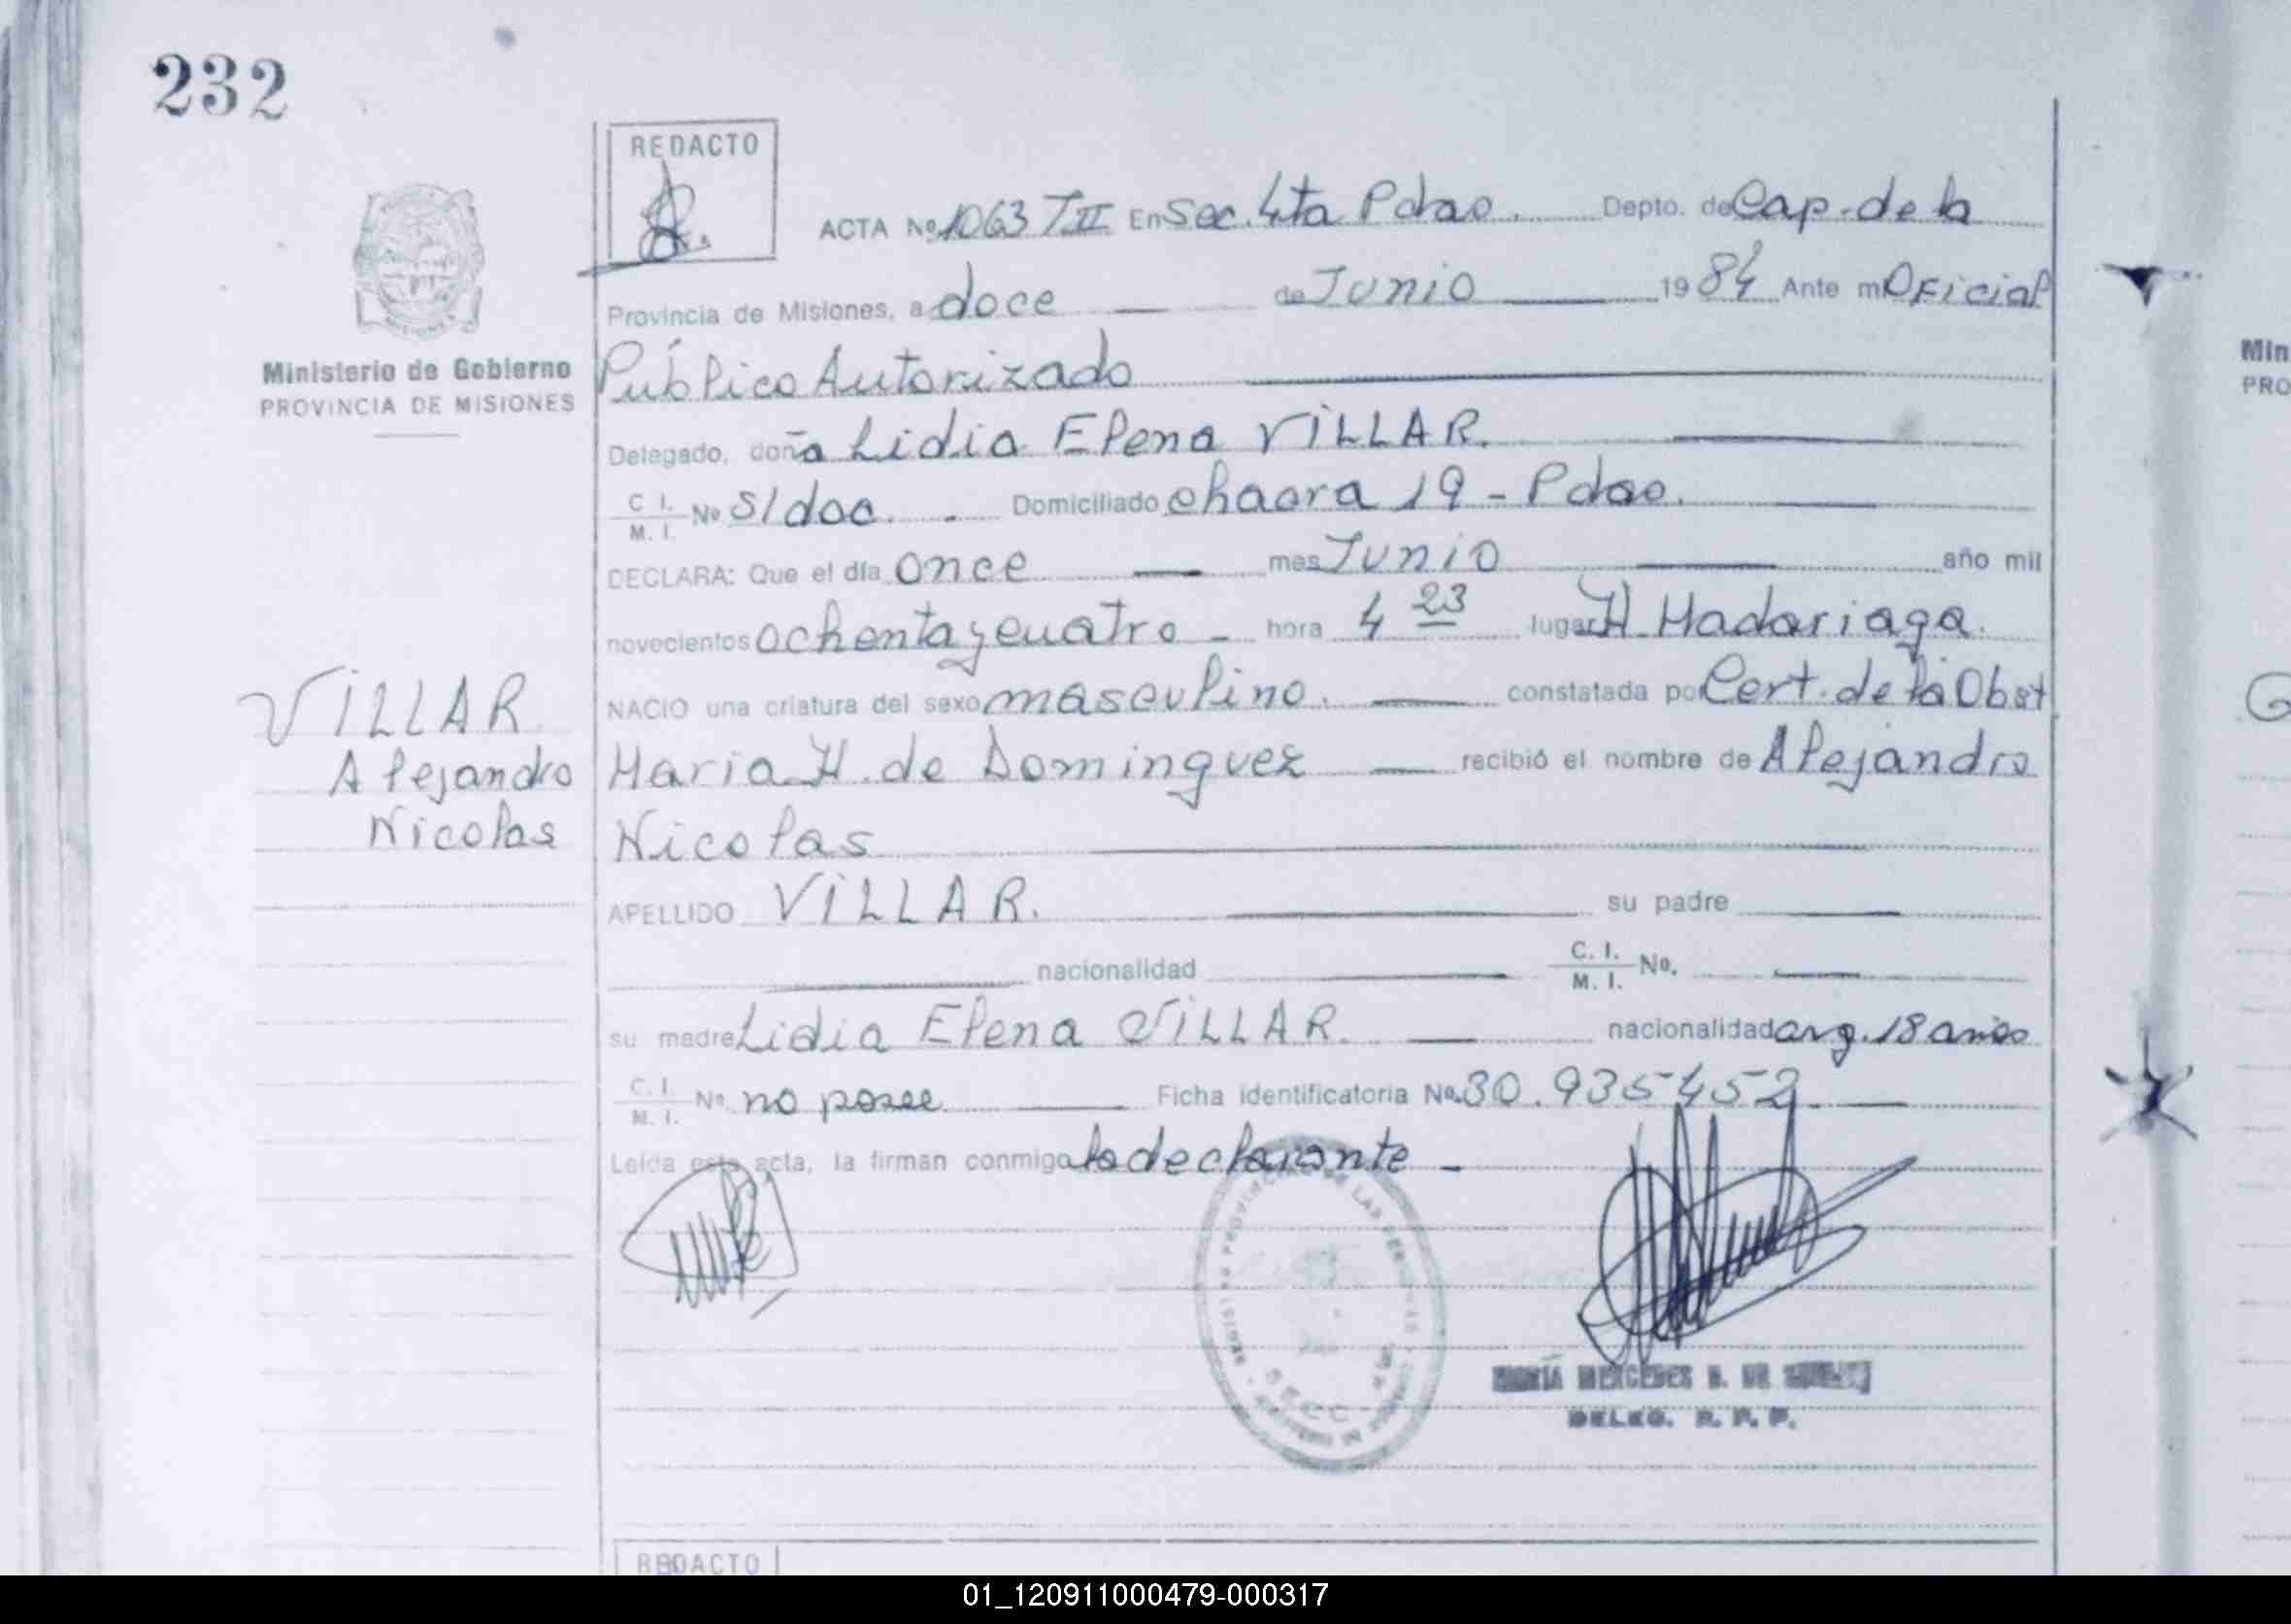 232
REDACTO
ACTA Nº 1063 TII En Sec. 4ta Pdas. Depto. de Cap. de la
Provincia de Misiones, a doce de Junio 1984 Ante mí Oficial
Ministerio de Gobierno
PROVINCIA DE MISIONES
Público Autorizado
Delegado, doña Lidia Elena VILLAR.
C. I.
M. I. Nº s/doc. Domiciliado chacra 19 - Pdas.
DECLARA: Que el día once mes Junio año mil
novecientos ochenta y cuatro - hora 4 23 lugar H. Madariaga.
NACIO una criatura del sexo masculino. constatada por Cert. de la Obst
VILLAR
Alejandro
Nicolas
Maria H. de Dominguez recibió el nombre de Alejandro
Nicolas
APELLIDO VILLAR. su padre
nacionalidad C. I.
M. I. No.
su madre Lidia Elena VILLAR. nacionalidad arg. 18 años
C. I.
M. I. Nº no posee Ficha identificatoria No. 30.935452.
Leída esta acta, la firman conmigo la declarante -
PROVINCIAL DE LAS PERSONAS
SECC
MARÍA MERCEDES B. DE
DELEG. R. P. P.
REDACTO
Min
PRO
01_120911000479-000317